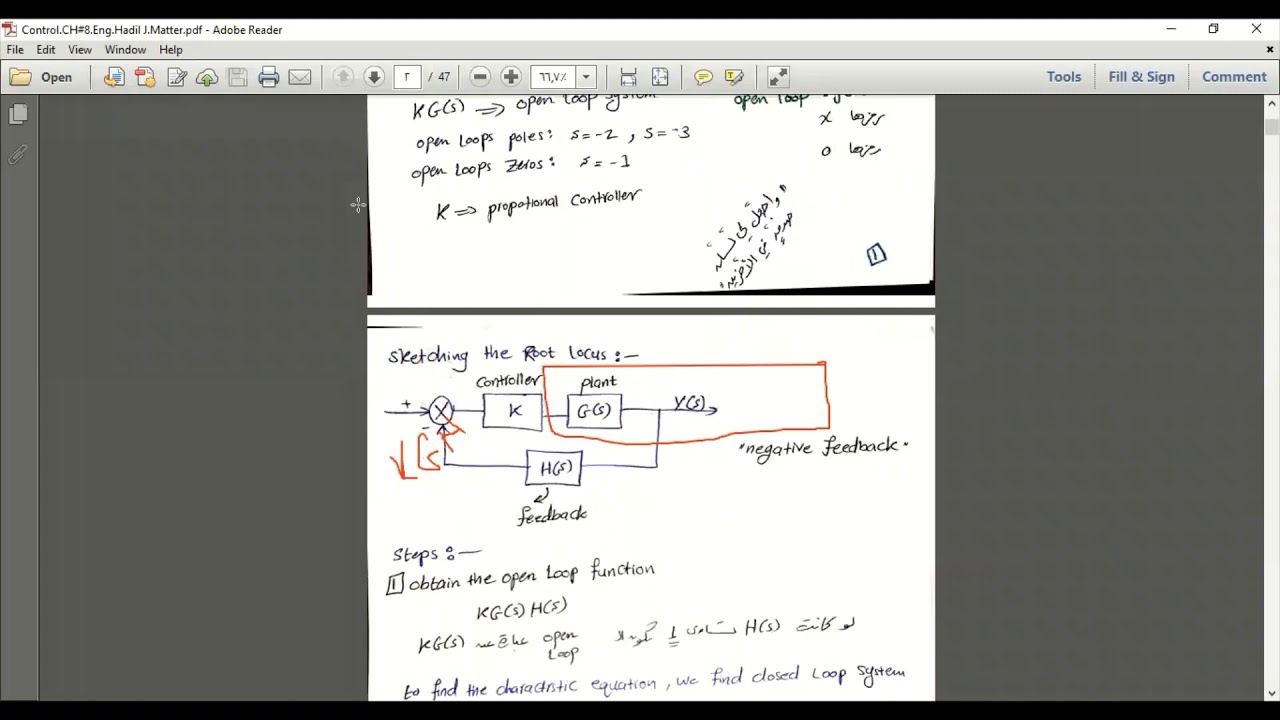 Control.CH#8.Eng.Hadil J.Matter.pdf - Adobe Reader
File Edit View Window Help
Open ٢ / 47 ٦٦,٧٪ Tools Fill & Sign Comment
KG(s) ⟹ open Loop system
open Loop
open Loops poles: s=-2 , s=-3
x
open Loops Zeros: s=-1
o
K ⟹ propotional Controller
١
Sketching the Root locus :-
Controller plant
+ X K G(s) Y(s)
-
"negative feedback"
H(s)
feedback
Steps :-
1 obtain the open Loop function
KG(s)H(s)
لو كانت H(s) تساوي 1
KG(s) open Loop
to find the charactristic equation, we find closed Loop system